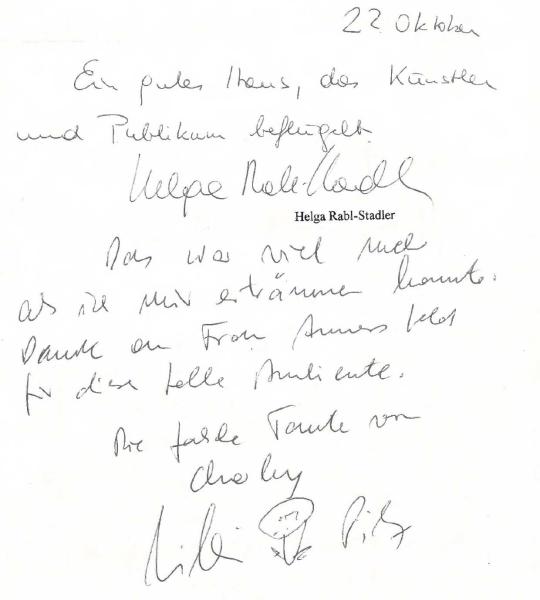 22 Oktober
Ein gutes Haus, das Künstler
und Publikum beflügelt.
Helga Rabl-Stadler
Helga Rabl-Stadler
Das war viel mehr
als ich mir erträumen konnte.
Danke an Frau
für diese tolle Ambiente.
Die falsche Tante von
Charley
Pilz